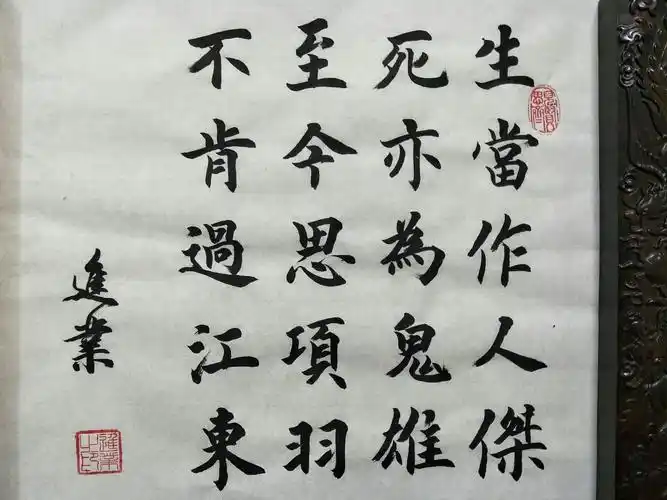 生當作人傑
死亦為鬼雄
至今思項羽
不肯過江東
進業